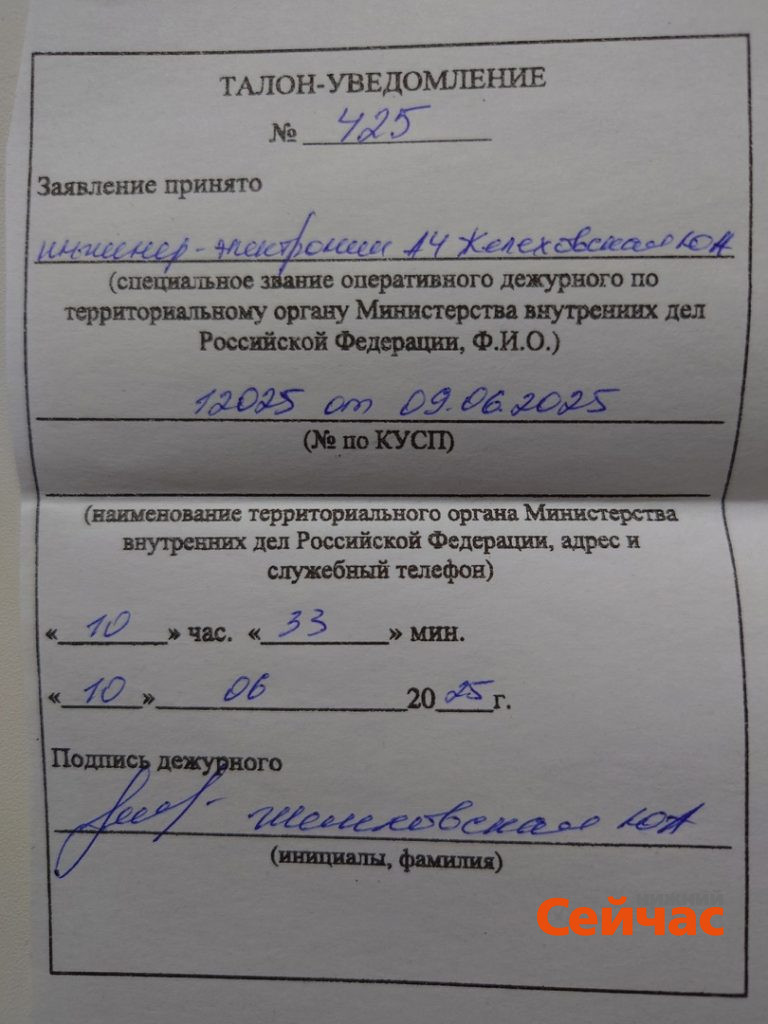 ТАЛОН-УВЕДОМЛЕНИЕ
№ 425
Заявление принято
инженер-электроник ДЧ Желеховская ЮА
(специальное звание оперативного дежурного по
территориальному органу Министерства внутренних дел
Российской Федерации, Ф.И.О.)
12025 от 09.06.2025
(№ по КУСП)
(наименование территориального органа Министерства
внутренних дел Российской Федерации, адрес и
служебный телефон)
« 10 » час. « 33 » мин.
« 10 » 06 2025 г.
Подпись дежурного
Желеховская ЮА
(инициалы, фамилия)
НИЖНИЙ
Сейчас